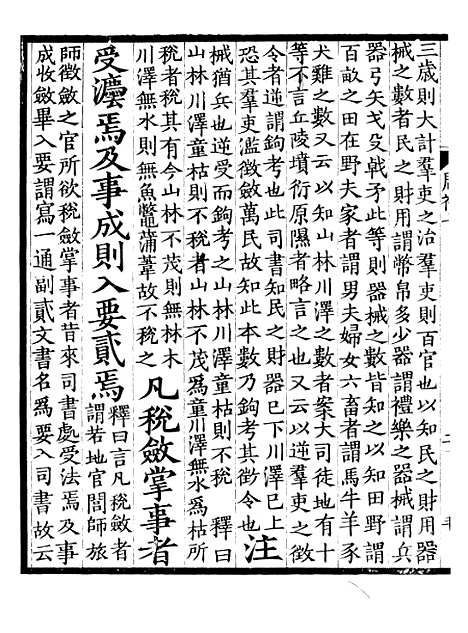 三歲則大計羣吏之治羣吏則百官也以知民之財用器
械之數者民之財用謂幣帛多少器謂禮樂之器械謂兵
器弓矢戈殳戟矛此等則器械之數皆知之以知田野謂
百畝之田在野夫家者謂男夫婦女六畜者謂馬牛羊豕
犬雞之數又云以知山林川澤之數者案大司徒地有十
等不言丘陵墳衍原隰者略言之也又云以逆羣吏之徵
令者逆謂鉤考也此司書知民之財器已下川澤已上
恐其羣吏濫徵斂萬民故知此本數乃鉤考其徵令也 注
械猶兵也逆受而鉤考之山林川澤童枯則不稅 釋曰
山林川澤童枯則不稅者山林不茂爲童川澤無水爲枯所
稅者稅其有今山林不茂則無林木
川澤無水則無魚鼈蒲葦故不稅之 凡稅斂掌事者
受灋焉及事成則入要貳焉 釋曰言凡稅斂者
謂若地官閭師旅
師徵斂之官所欲稅斂掌事者昔來司書處受法焉及事
成收斂畢入要謂寫一通副貳文書名爲要入司書故云